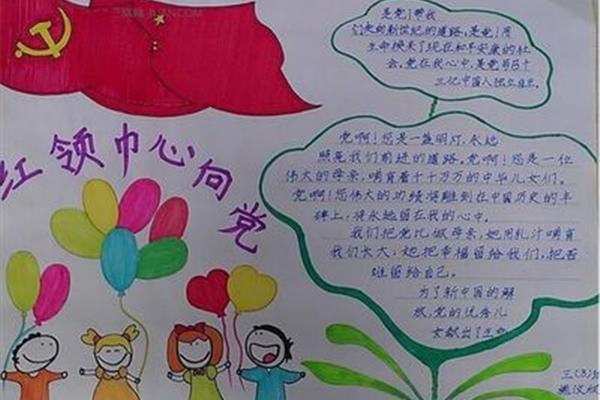 红领巾心向党
是党!帮我
们走向新世纪的道路,是党!用
生命换来了现在和平安康的社
会,党在我心中,是党哥
三亿中国人独立自主.
党啊!您是一盏明灯,永远
照亮我们前进的道路.党啊!您是一位
伟大的母亲,哺育着十千万万的中华儿女们.
党啊!您伟大的功绩深雕刻在中国历史的丰
碑上,将永远留在我的心中.
我们把党比做母亲,她用乳汁哺育
我们长大,她把幸福留给我们,把苦
难留给自己.
为了新中国的解
放,党的优秀儿
女献出了生命
三(3)